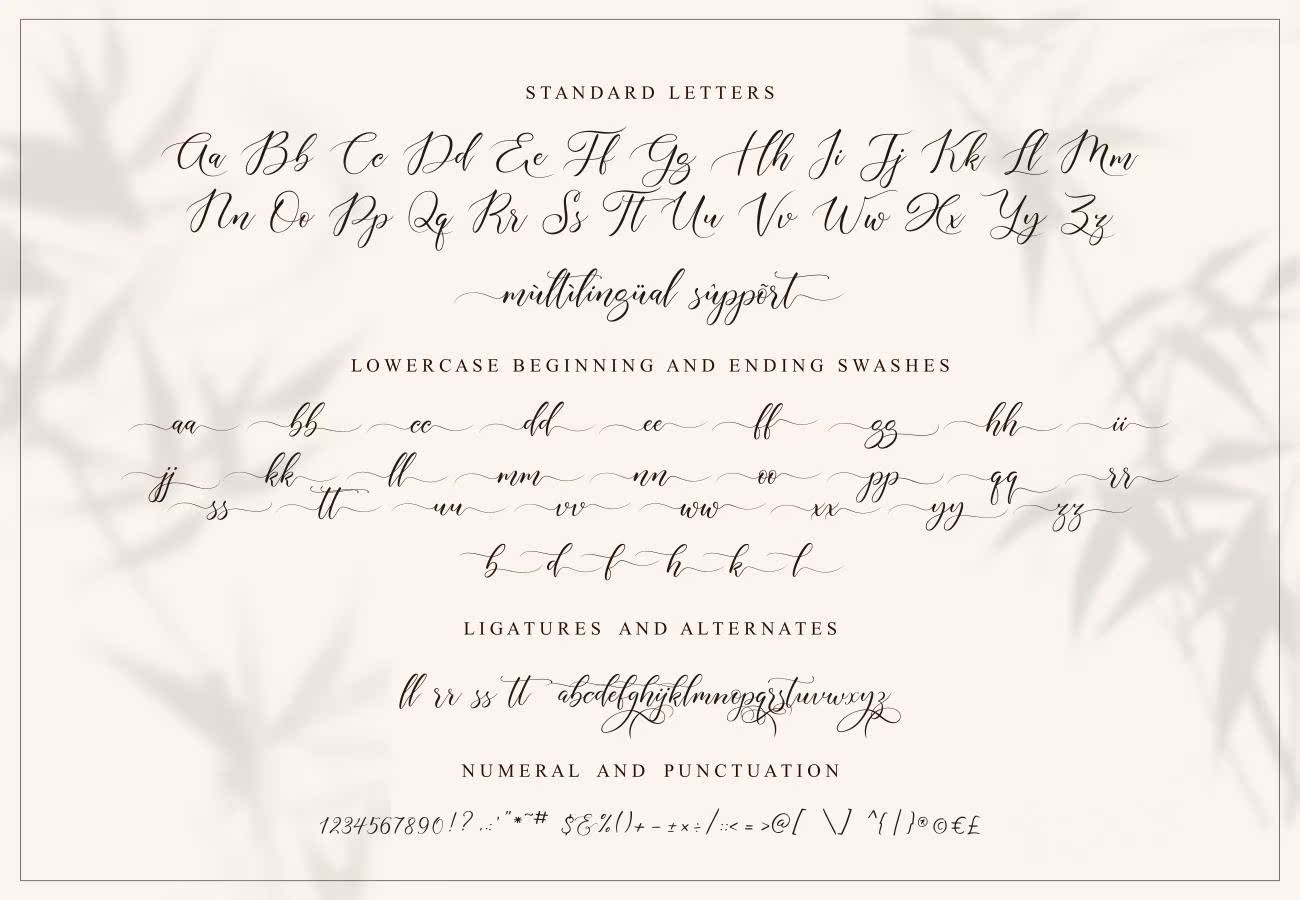 STANDARD LETTERS
Aa Bb Cc Dd Ee Ff Gg Hh Ii Jj Kk Ll Mm
Nn Oo Pp Qq Rr Ss Tt Uu Vv Ww Xx Yy Zz
mùltìlingüal sûppõrt
LOWERCASE BEGINNING AND ENDING SWASHES
aa bb cc dd ee ff gg hh ii
jj kk ll mm nn oo pp qq rr
ss tt uu vv ww xx yy zz
b d f h k l
LIGATURES AND ALTERNATES
ll rr ss tt abcdefghijklmnopqrstuvwxyz
NUMERAL AND PUNCTUATION
1234567890!? .,:;'"*~# $&%()+ - ±×÷/::< = >@[ \] ^{|}®©€£